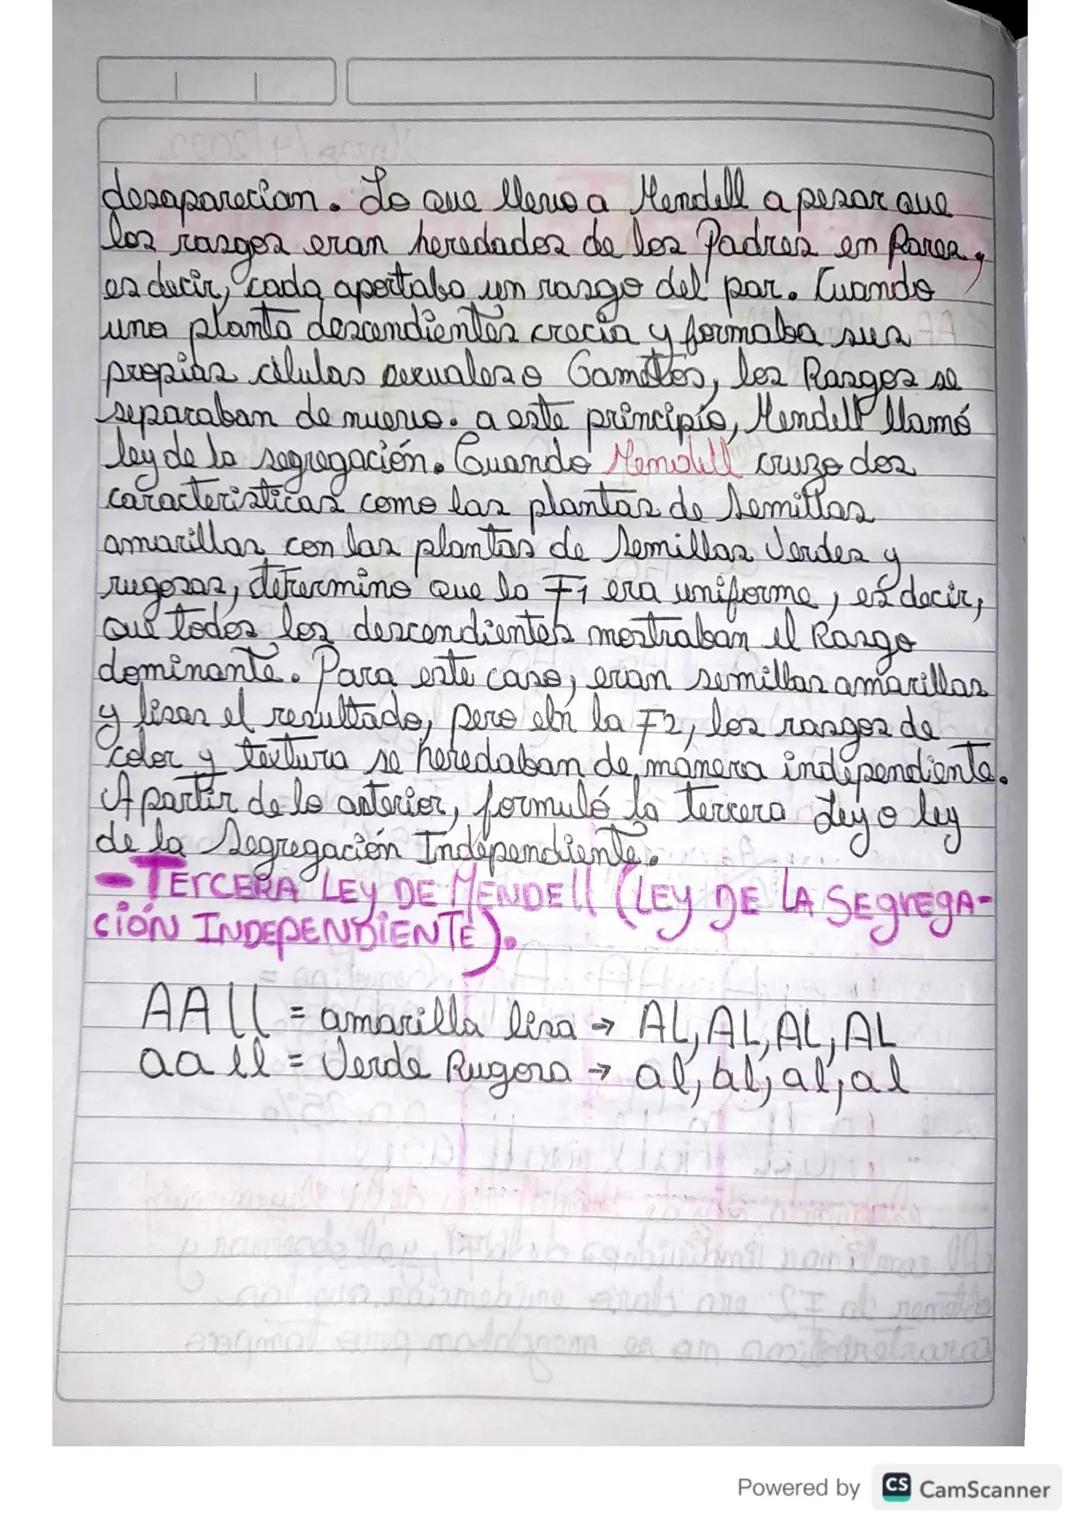 desaparecian. Lo que llevo a Mendell a pesar que
los rasgos eran heredados de los Padres en Pares,
es decir, cada aportaba un rasgo del par. Cuando
una planta descendientes crecia y formaba sus
propias celulas sexuales o Gametos, los Rasgos se
separaban de nuevo. a este principio, Mendell llamó
ley de la segregación. Cuando Mendell cruzo dos
caracteristicas como las plantas de Semillas
amarillas con las plantas de Semillas Verdes y
rugosas, determino que la F1 era uniforme, es decir,
que todos los descendientes mostraban el Rasgo
dominante. Para este caso, eran semillas amarillas
y lisas el resultado, pero en la F2, los rasgos de
color y textura se heredaban de manera independiente.
A partir de lo anterior, formuló la tercera Ley o ley
de la Segregación Independiente.
- TERCERA LEY DE MENDEll (LEY DE LA SEgrEGA-
CIÓN INDEPENDIENTE).
AALL = amarilla lisa → AL, AL, AL, AL
aall = Verde Rugosa → al, al, al, al
Powered by CS CamScanner